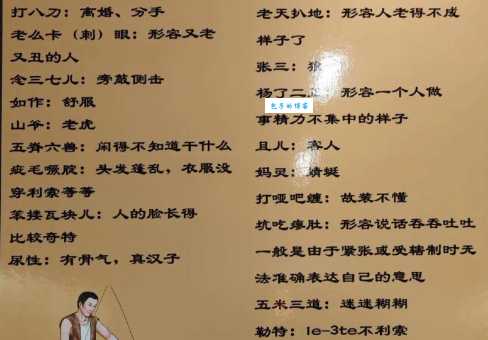 打八刀：离婚、分手
老么卡（刺）眼：形容又老
又丑的人
念三七儿：旁敲侧击
如作：舒服
山爷：老虎
五脊六兽：闲得不知道干什么
疵毛撅腚：头发蓬乱，衣服没
穿利索等等
笨搂瓦块儿：人的脸长得
比较奇特
尿性：有骨气，真汉子
老天扒地：形容人老得不成
样子了
张三：狼
杨了二正：形容一个人做
包子的博客
事精力不集中的样子
且儿：客人
妈灵：蜻蜓
打哑吧缠：故装不懂
坑吃瘪肚：形容说话吞吞吐吐
一般是由于紧张或受辖制时无
法准确表达自己的意思
五米三道：迷迷糊糊
勒特：le-3te不利索